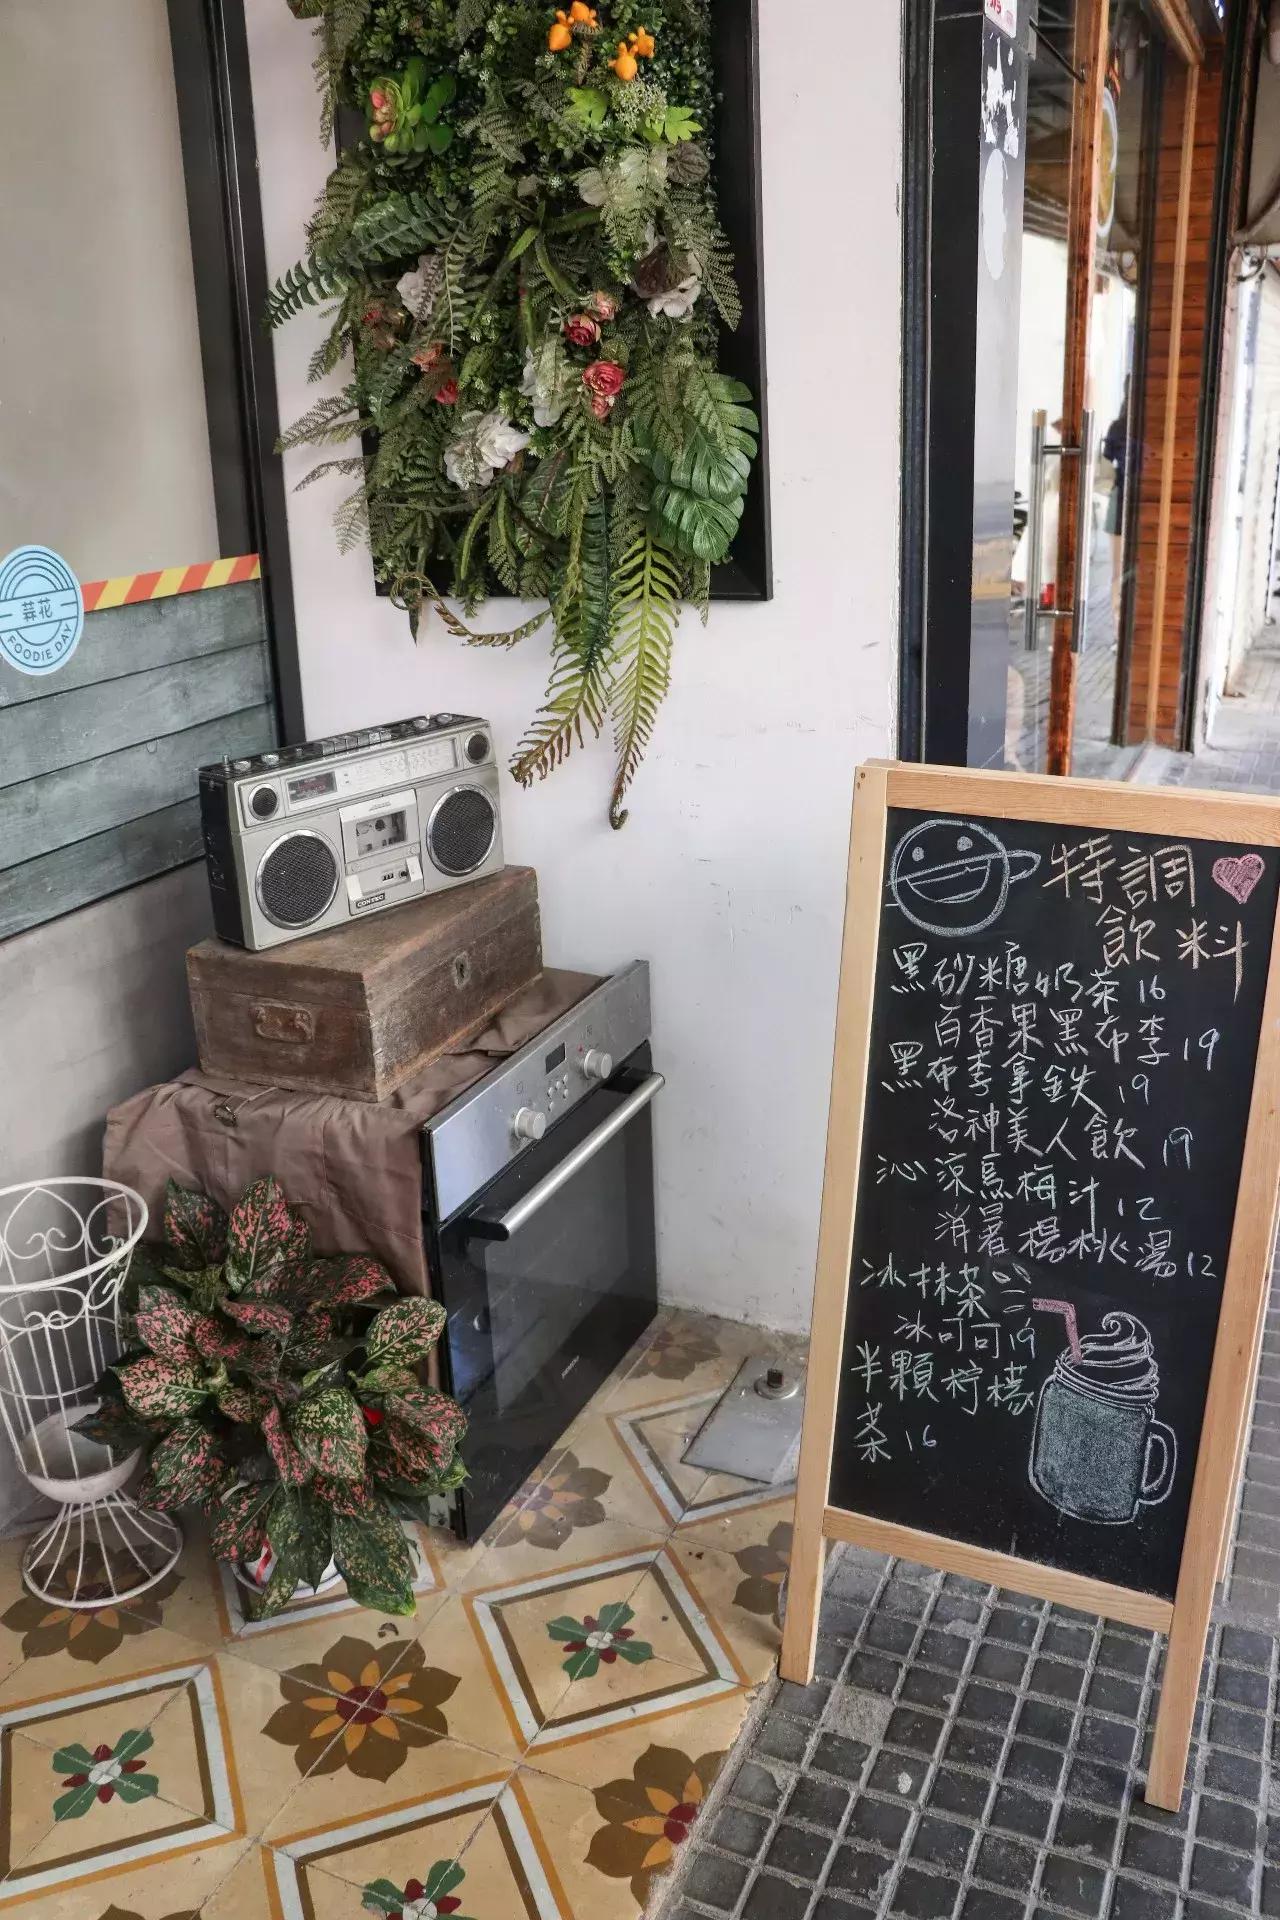 茻花
FOODIE DAY
CONTEC
特調
飲料
黑砂糖奶茶 16
百香果黑布李 19
黑布李拿鉄 19
洛神美人飲 19
沁涼烏梅汁 12
消暑楊桃湯 12
冰抹茶
冰可可 19
半顆柠檬
茶 16